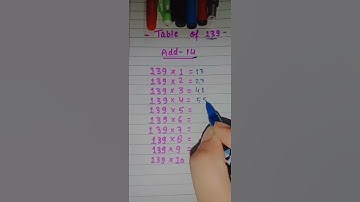 - Table of 139 -
Add-14
139 × 1 = 13
139 × 2 = 27
139 × 3 = 41
139 × 4 = 55
139 × 5 =
139 × 6 =
139 × 7 =
139 × 8 =
139 × 9 =
139 × 10